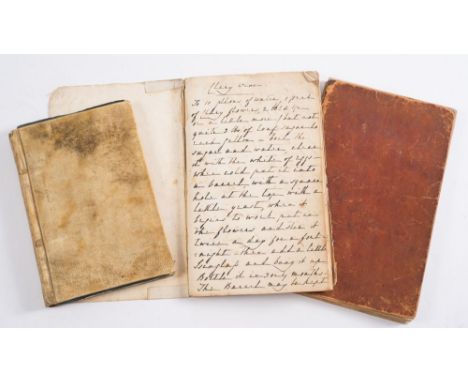 To 10 gallons of water, a peck
of flowers, a
or a little more, but not
quite 3 lbs of loaf sugar to
each gallon. Boil the
sugar and water, clear
it with the white of Eggs -
when cold put it into
a Barrel with a square
hole at the top with a
little yeast, when it
begins to work put in
the flowers and stir it
twice a day for a fort-
=night - then add a little
Isinglass and bung it up
Bottle it in six months
The Barrel may be kept